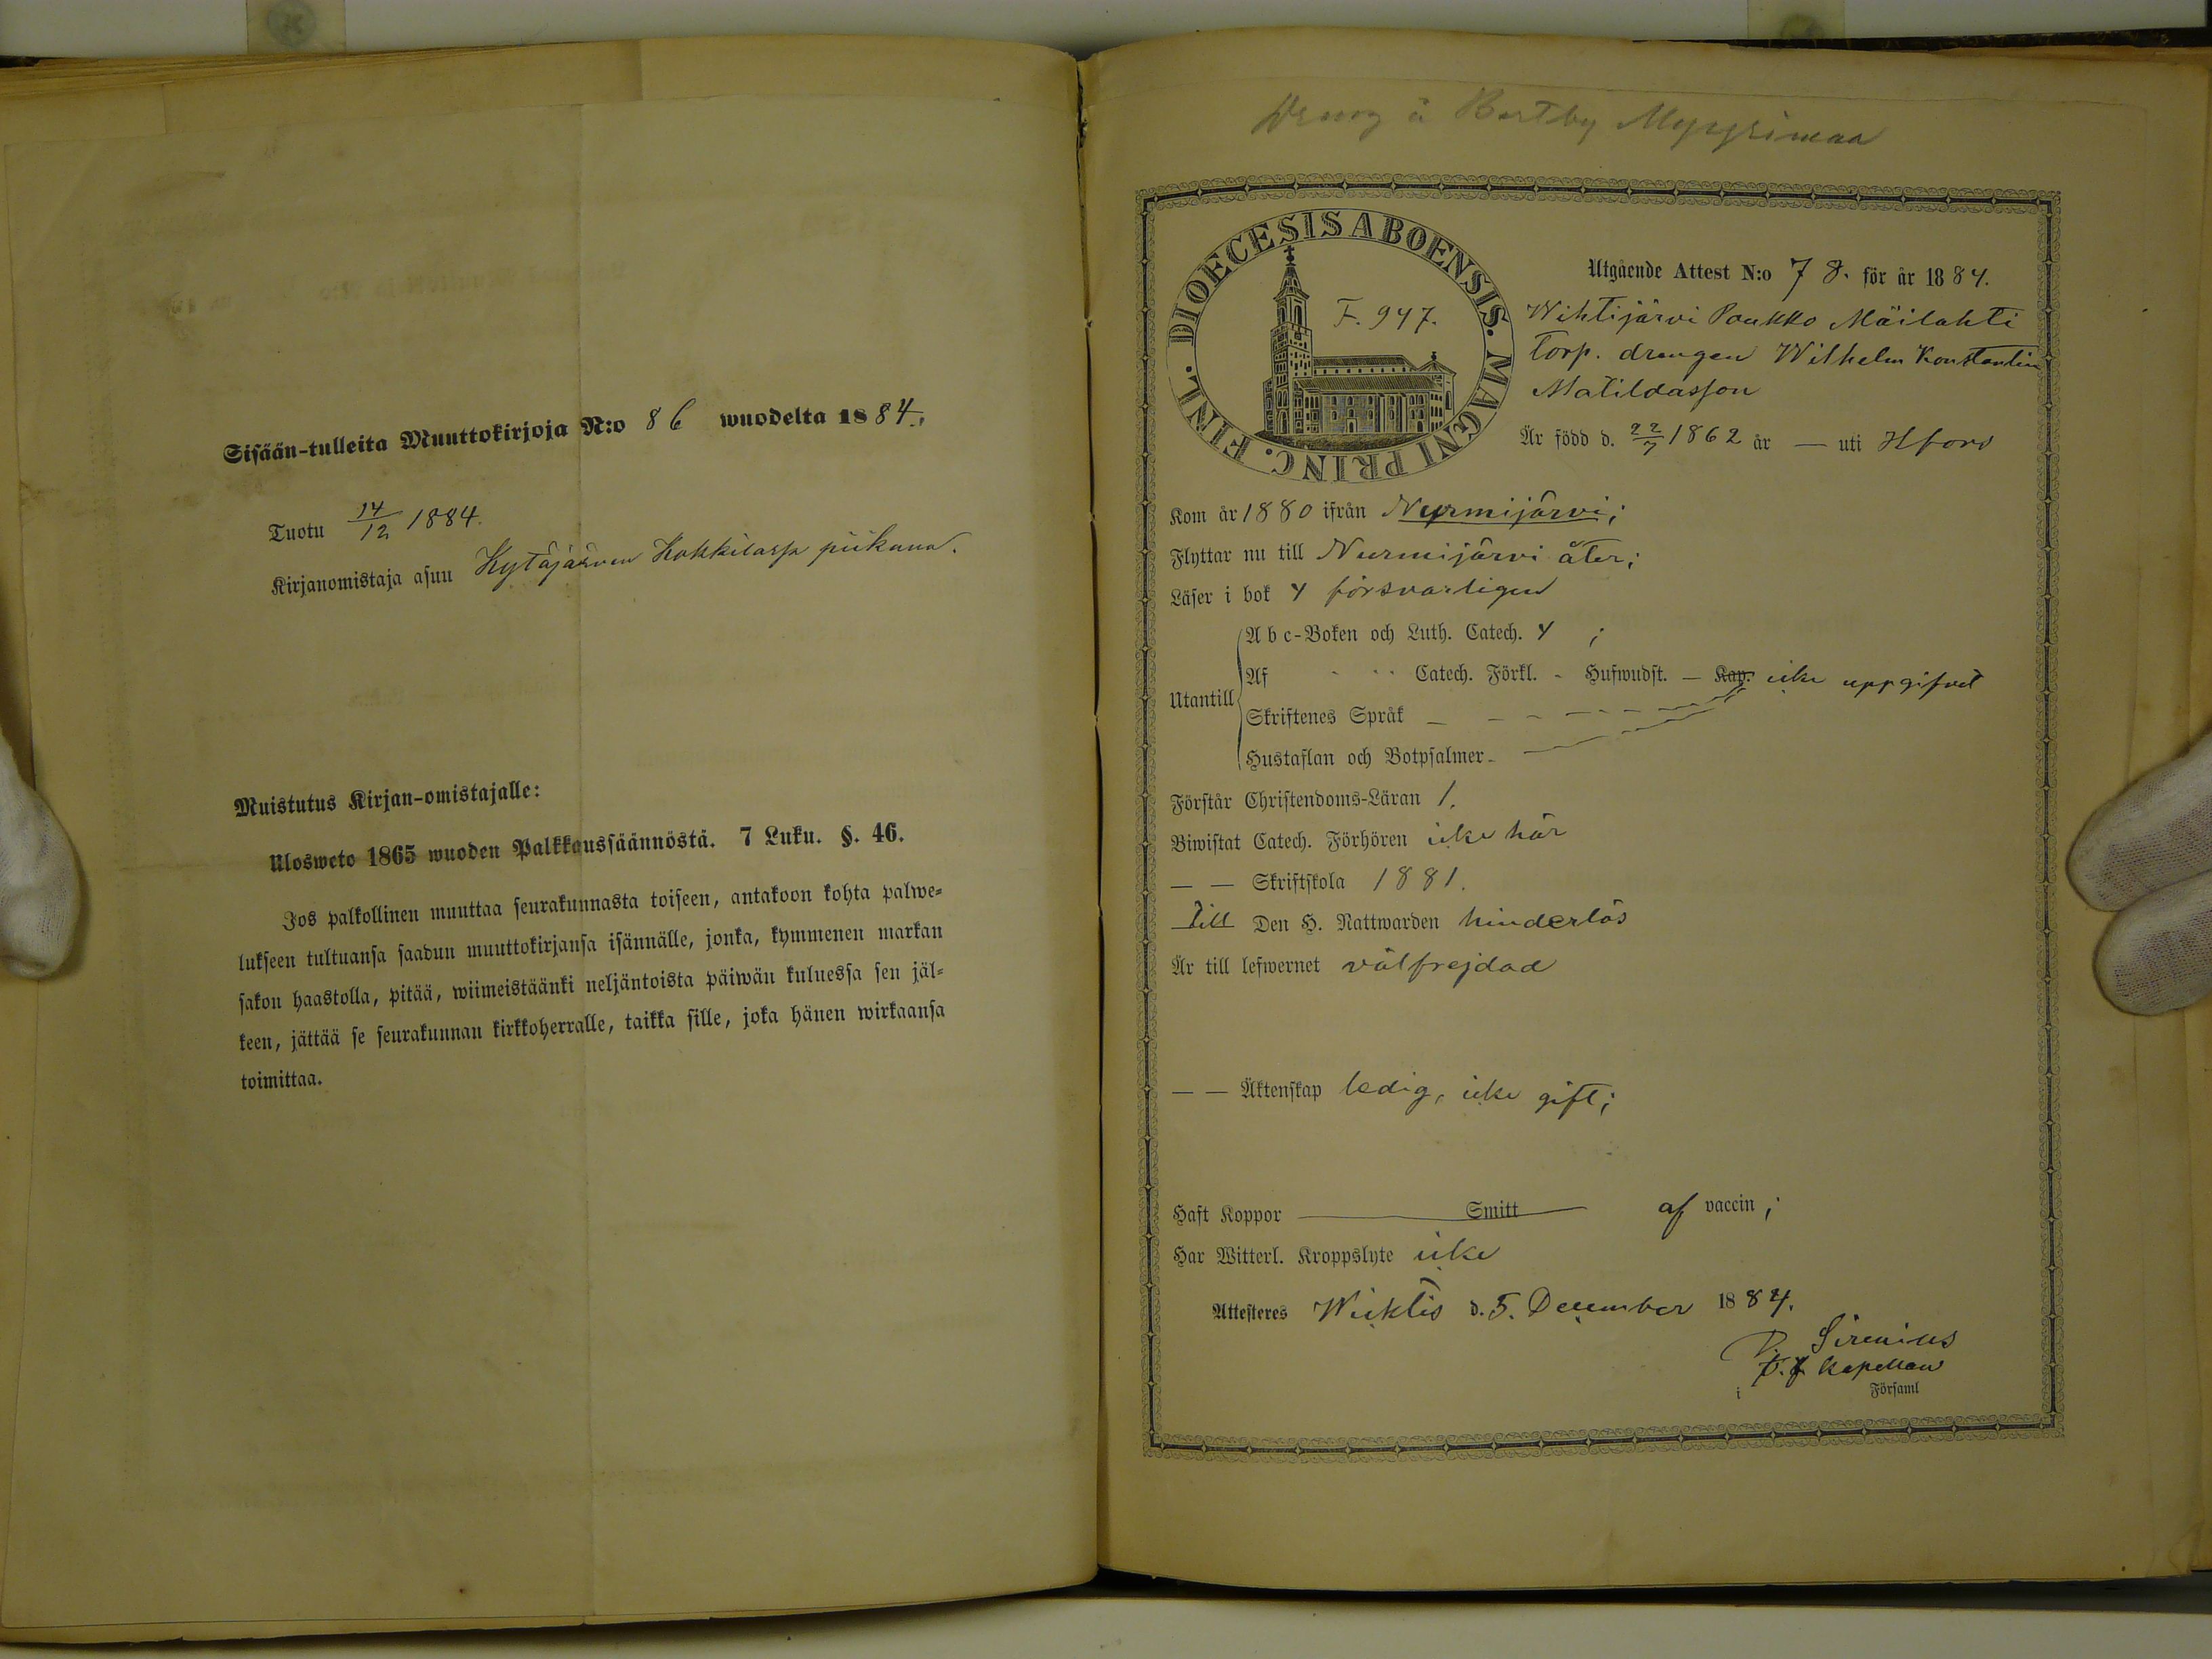 Sisään-tulleita Muuttokirjoja N:o 86 wuodelta 1884.
Tuotu 14/12 1884.
Kirjanomistaja asuu Kytäjärven Kokkilassa piikana.
Muistutus Kirjan-omistajalle:
Ulosweto 1865 wuoden Palkkaussäännöstä. 7 Luku. §. 46.
Jos palkollinen muuttaa seurakunnasta toiseen, antakoon kohta palwe-
lukseen tultuansa saadun muuttokirjansa isännälle, jonka, kymmenen markan
sakon haastolla, pitää, wiimeistäänki neljäntoista päiwän kuluessa sen jäl-
keen, jättää se seurakunnan kirkkoherralle, taikka sille, joka hänen wirkaansa
toimittaa.
Dreng å Bertby
DIOECESIS ABOENSIS. MAGNI PRINC. FINL.
F. 947.
Utgående Attest N:o 78. för år 1884.
Wihtijärvi Poukko Mäilahti
torp. drengen Wilhelm Konstantin
Matildasson
Är född d. 22/7 1862 år — uti Hfors
Kom år 1880 ifrån Nurmijärvi;
Flyttar nu till Nurmijärvi åter;
Läser i bok 4 försvarligen
Utantill
Abc-Boken och Luth. Catech. 4 ;
Af Catech. Förkl. - Hufwudst. — Kap. icke uppgifvet
Skriftenes Språk — - - - - -
Hustaflan och Botpsalmer -
Förstår Christendoms-Läran 1.
Biwistat Catech. Förhören icke här
— — Skriftskola 1881.
Till Den H. Nattwarden hinderlös
Är till lefwernet välfrejdad
— — Äktenskap ledig, icke gift;
Haft Koppor Smitt af vaccin;
Har Witterl. Kroppslyte icke
Attesteres Wichtis d. 5. December 1884.
Sirenius
t.f. kapellan
i Församl